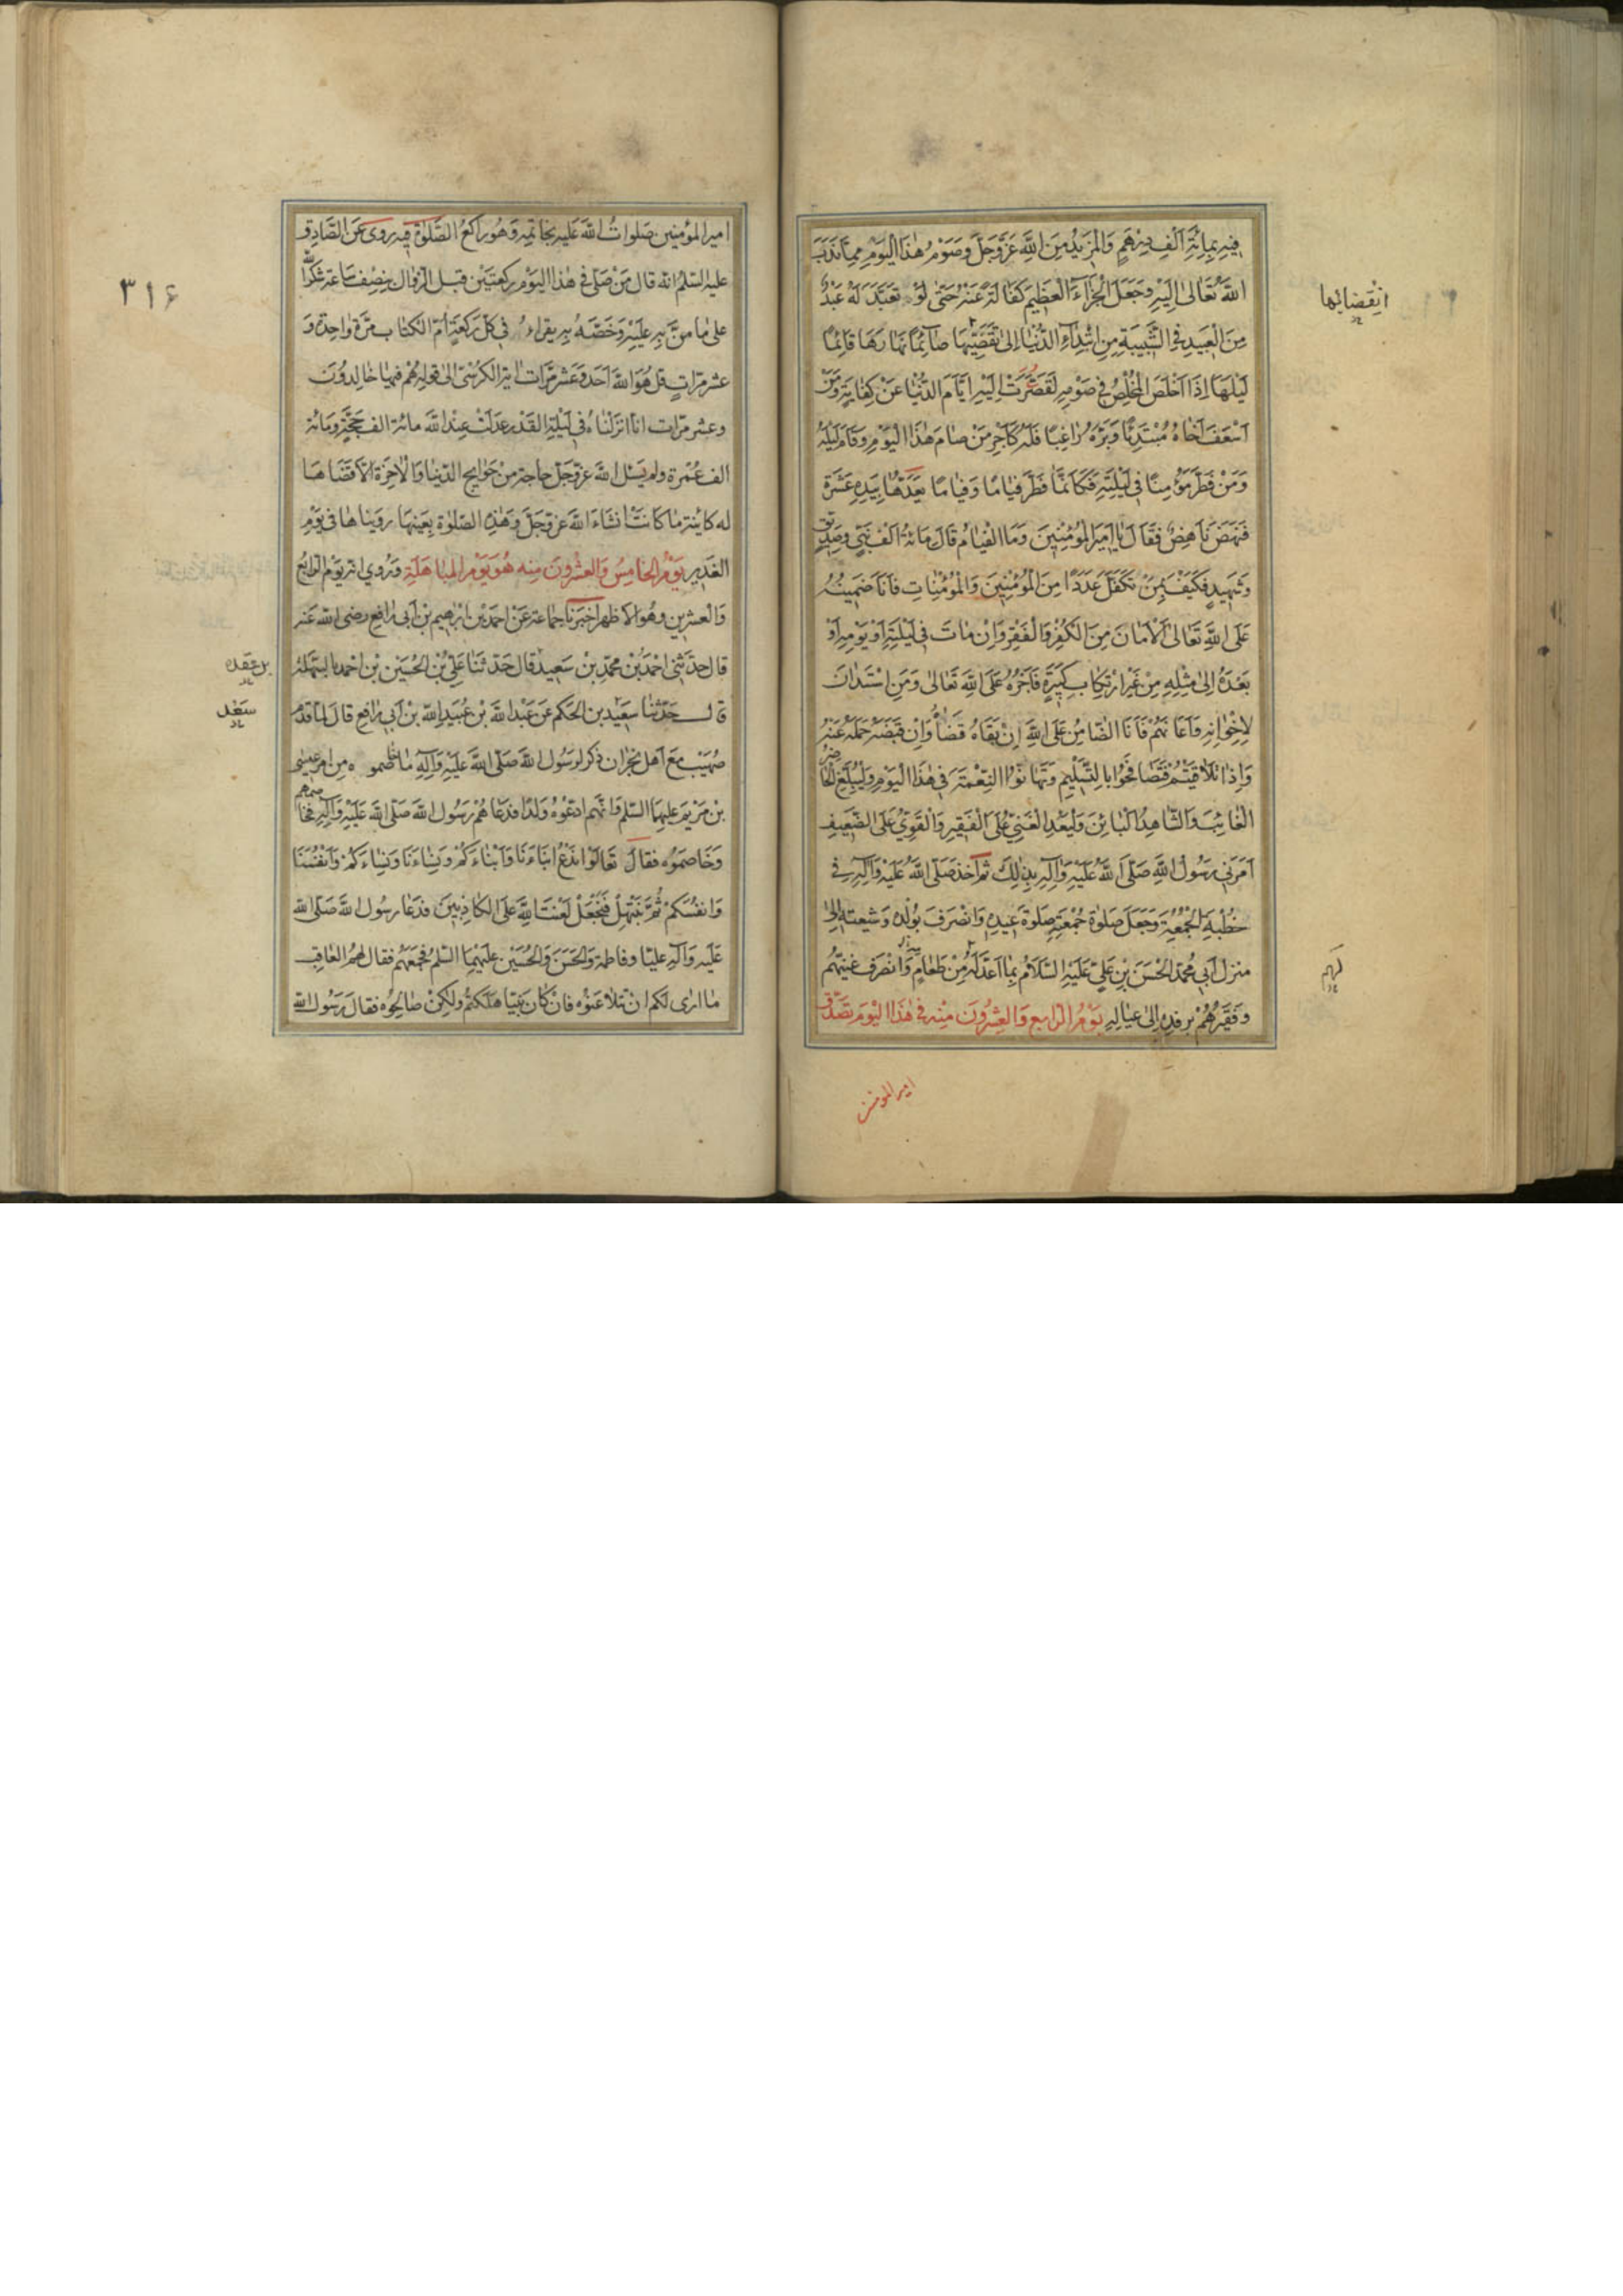 فِيهِ بِمِائَةِ اَلْفِ دِرْهَمٍ وَالْمَزِيدُ مِنَ اللَّهِ عَزَّوَجَلَّ وَصَوْمُ هٰذَا الْيَوْمِ مِمَّا نَدَبَ
اللَّهُ تَعَالٰى اِلَيْهِ وَجَعَلَ الْجَزَاءَ الْعَظِيمَ كَفَالَةً عَنْهُ حَتّٰى لَوْ تَعَبَّدَ لَهُ عَبْدٌ
انْقِضَائِهَا
مِنَ الْعَبِيدِ فِي الشَّبِيبَةِ مِنِ ابْتِدَاءِ الدُّنْيَا اِلٰى تَقَضِّيهَا صَائِمًا نَهَارَهَا قَائِمًا
لَيْلَهَا اِذَا اَخْلَصَ الْمُخْلِصُ فِي صَوْمِهِ لَقَصُرَتْ اِلَيْهِ اَيَّامُ الدُّنْيَا عَنْ كِفَايَةٍ وَمَنْ
اَسْعَفَ اَخَاهُ مُبْتَدِئًا وَبَرَّهُ رَاغِبًا فَلَهُ كَاَجْرِ مَنْ صَامَ هٰذَا الْيَوْمِ وَقَامَ لَيْلَهُ
وَمَنْ فَطَّرَ مُؤْمِنًا فِي لَيْلَتِهِ فَكَاَنَّمَا فَطَّرَ فِيَامًا وَفِيَامًا يَعُدُّهَا بِيَدِهِ عَشَرَةً
فَنَهَضَ نَاهِضٌ فَقَالَ يَا اَمِيرَ الْمُؤْمِنِينَ وَمَا الْفِيَامُ قَالَ مِائَةُ اَلْفِ نَبِيٍّ وَصِدِّيقٍ
وَشَهِيدٍ فَكَيْفَ بِمَنْ تَكَفَّلَ عَدَدًا مِنَ الْمُؤْمِنِينَ وَالْمُؤْمِنَاتِ فَاَنَا ضَمِينُهُ
عَلَى اللَّهِ تَعَالٰى الْاَمَانَ مِنَ الْكُفْرِ وَالْفَقْرِ وَاِنْ مَاتَ فِي لَيْلَتِهِ اَوْ يَوْمِهِ اَوْ
بَعْدَهُ اِلٰى مِثْلِهِ مِنْ غَيْرِ ارْتِكَابِ كَبِيرَةٍ فَاَجْرُهُ عَلَى اللَّهِ تَعَالٰى وَمَنِ اسْتَدَانَ
لِاِخْوَانِهِ وَاَعَانَهُمْ فَاَنَا الضَّامِنُ عَلَى اللَّهِ اِنْ بَقَّاهُ قَضَاهُ وَاِنْ قَبَضَهُ حَمَلَهُ عَنْهُ
وَاِذَا تَلَاقَيْتُمْ فَتَصَافَحُوا بِالتَّسْلِيمِ وَتَهَانَوُا النِّعْمَةَ فِي هٰذَا الْيَوْمِ وَلْيُبَلِّغِ الْحَاضِرُ
الْغَائِبَ وَالشَّاهِدُ الْبَائِنَ وَلْيَعُدِ الْغَنِيُّ عَلَى الْفَقِيرِ وَالْقَوِيُّ عَلَى الضَّعِيفِ
اَمَرَنِي رَسُولُ اللَّهِ صَلَّى اللَّهُ عَلَيْهِ وَاٰلِهِ بِذٰلِكَ ثُمَّ اَخَذَ صَلَّى اللَّهُ عَلَيْهِ وَاٰلِهِ فِي
خُطْبَةِ الْجُمُعَةِ وَجَعَلَ صَلٰوةَ جُمْعَتِهِ صَلٰوةَ عِيدِهِ وَانْصَرَفَ بِوُلْدِهِ وَشِيعَتِهِ اِلٰى
منزل اَبِي مُحَمَّدٍ الْحَسَنِ بْنِ عَلِيٍّ عَلَيْهِ السَّلَامُ بِمَا اَعَدَّ لَهُ مِنْ طَعَامٍ وَانْصَرَفَ غَنِيُّهُمْ
لَهُمْ
وَفَقِيرُهُمْ بِرِفْدِهِ اِلٰى عِيَالِهِ يَوْمُ الرَّابِعِ وَالْعِشْرُونَ مِنْهُ فِي هٰذَا الْيَوْمِ تَصَدَّقَ
امیرالمومنین
امير المؤمنين صَلَوَاتُ اللَّهِ عَلَيْهِ بِخَاتَمِهِ وَهُوَ رَاكِعٌ الصَّلٰوةُ فِيهِ رَوٰى عَنِ الصَّادِقِ
عليه السَّلمُ انّه قال مَنْ صَلّٰى فِي هٰذَا اليَوْمِ رَكعَتَيْنِ قبل الزوال بنِصْفِ سَاعَةٍ شُكْرًا لِلَّهِ
٣١۶
عَلٰى مَا مَنَّ بِهِ عَلَيْهِ وَخَصَّهُ بِهِ يقراءُ فِي كلِّ رَكْعَةٍ اُمَّ الكِتَابِ مَرَّةً وَاحِدَةً وَ
عَشْرَ مرّاتٍ قُلْ هُوَ اللَّهُ اَحَدٌ وَعَشْرَ مَرَّات اٰيةَ الكُرْسِيِّ اِلٰى قَولِهِ هُمْ فِيهَا خَالِدُونَ
وعشر مرّات انَّا اَنْزَلْنَاهُ فِي لَيْلَةِ القَدْرِ عَدَلَتْ عِنْدَ اللَّهِ مائة الف حَجَّةٍ ومَائة
الف عُمْرَة ولم يَسْئَلِ اللَّهَ عَزَّوَجَلَّ حاجة مِنْ حَوَايِجِ الدّنيَا وَالْاٰخِرَةِ اِلَّا قَضَاهَا
له كائنة مَا كَانَتْ انْشَاءَ اللَّهُ عَزَّوَجَلَّ وَهٰذِهِ الصَّلٰوةُ بِعَيْنِهَا رَوَيْنَاهَا فِي يَوْمِ
الغَدِيرِ يَوْمُ الخَامِسُ وَالعِشْرُونَ مِنْه هُوَ يَوْمُ المُبَاهَلَةِ وَرُوِيَ انّه يَوْمُ الرَّابِعُ
وَالْعِشْرِينَ وَهُوَ الاَظهَر اخبَرَنا جمَاعَة عَنْ احْمَدَ بْنِ اِبْرٰهِيمَ بْنِ اَبِي رَافِعٍ رضى اللَّه عَنه
قال حدّثَنِي احْمَدُ بْنُ محمّدِ بْنِ سَعِيد قَال حَدّثَنَا عَلِيُّ بْنُ الحُسَيْنِ بْنِ احْمدَ
بن عقده
قال حَدَّثَنَا سَعِيْد بن الحَكَم عَن عَبْدِ اللَّهِ بْنِ عُبَيْدِ اللَّهِ بْنِ اَبِي رَافِعٍ قالَ لمَّا قَدِمَ
سَعْد
صُهَيْب مَعَ اَهْلِ نَجْرَان ذَكَر لِرَسُولِ اللَّهِ صَلَّى اللَّهُ عَلَيْهِ وَاٰلِهِ مَا مِن امرِ عِيسٰى
بْنِ مَرْيَمَ عليهمَا السَّلم وَانّهُم ادّعَوْهُ وَلَدًا فدَعَاهُمْ رَسُولُ اللَّهِ صَلَّى اللَّهُ عَلَيْهِ وَاٰلِهِ فَخَاصَمَهُم
وَخَاصَمُوه فقَالَ تَعَالَوْا نَدْعُ ابْنَاءَنَا وَاَبْنَاءَكُمْ وَنِسَاءَنَا وَنِسَاءَكُمْ وَاَنْفُسَنَا
وَانفُسَكُمْ ثُمَّ نَبْتَهِلْ فَنَجْعَلْ لَعْنَتَ اللَّهِ عَلَى الكَاذِبِينَ فدَعَا رسُول اللَّه صَلَّى اللَّه
عَلَيْهِ وَاٰلِهِ عليًّا وفاطمة وَالحَسَنَ وَالحُسَيْنَ عَلَيْهِمَا السَّلمُ فَجَمَعَهُمْ فقال لَهُمُ العَاقِبُ
مَا ارٰى لكم انْ تُلَاعِنُوهُ فَانْ كَانَ نَبِيًّا هَلَكْتُمْ وَلٰكِنْ صَالِحُوهُ فقَالَ رَسُولُ اللَّه